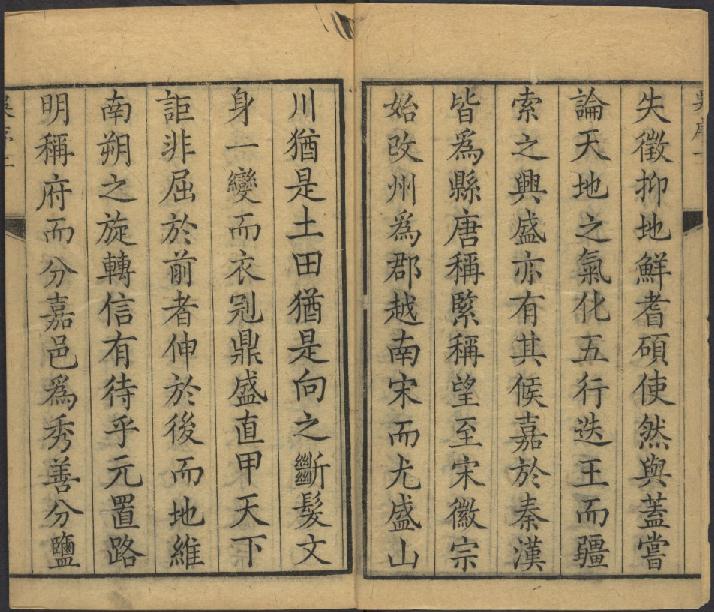 失徵抑地鮮耆碩使然與蓋嘗
論天地之氣化五行迭王而疆
索之興盛亦有其候嘉於秦漢
皆為縣唐稱緊稱望至宋徽宗
始改州為郡越南宋而尤盛山
川猶是土田猶是向之斷髮文
身一變而衣冠鼎盛直甲天下
詎非屈於前者伸於後而地維
南朔之旋轉信有待乎元置路
明稱府而分嘉邑為秀善分鹽